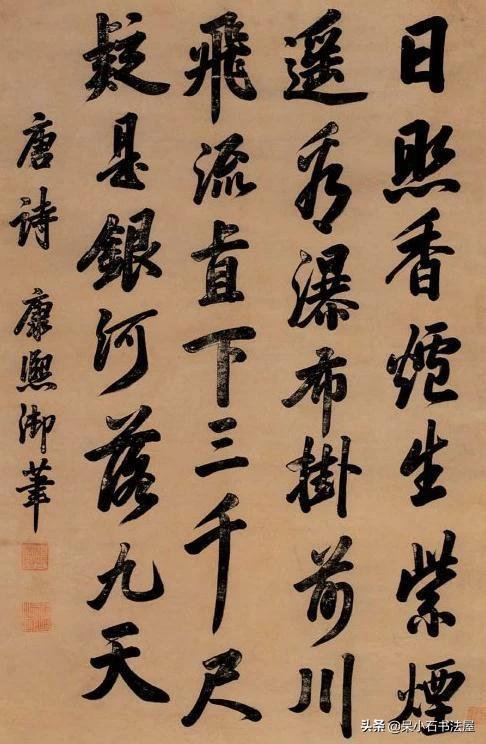 日照香爐生紫煙
遥看瀑布掛前川
飛流直下三千尺
疑是銀河落九天
唐詩 康熙御筆
头条 @呆小石书法屋